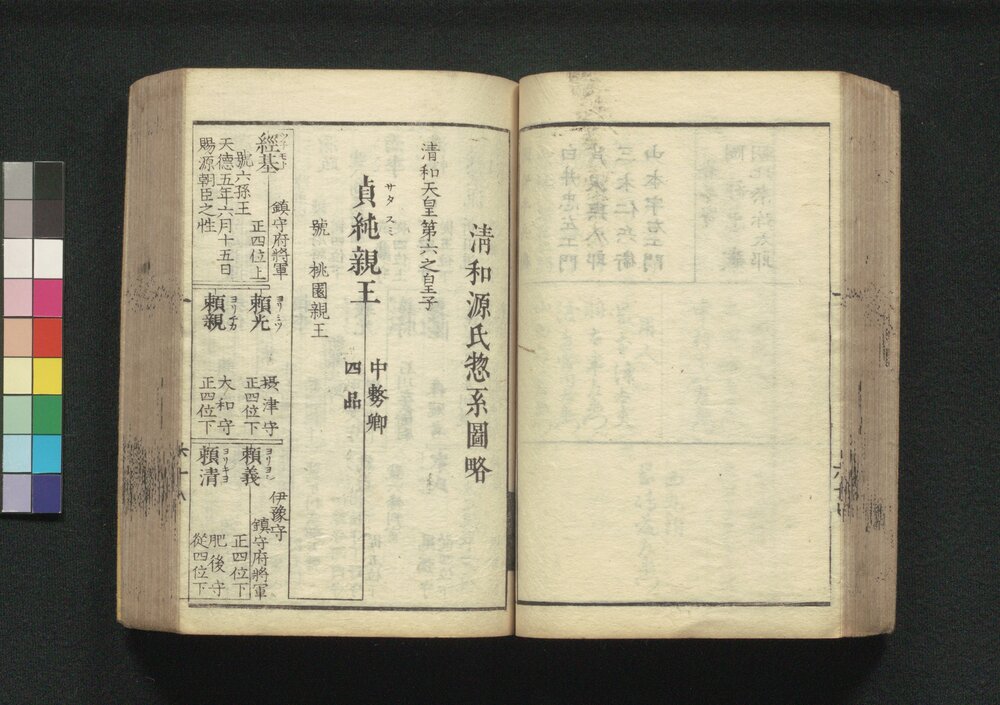 清和源氏惣系圖略
清和天皇第六之皇子
サタスミ
貞純親王
中務卿
四品
號桃園親王
ツネモト
經基
鎮守府將軍
正四位上
號六孫王
天德五年六月十五日
賜源朝臣之性
ヨリミツ
頼光
摂津守
正四位下
ヨリチカ
頼親
大和守
正四位下
ヨリヨシ
頼義
伊豫守
鎮守府將軍
正四位下
ヨリキヨ
頼清
肥後守
從四位下
六十八